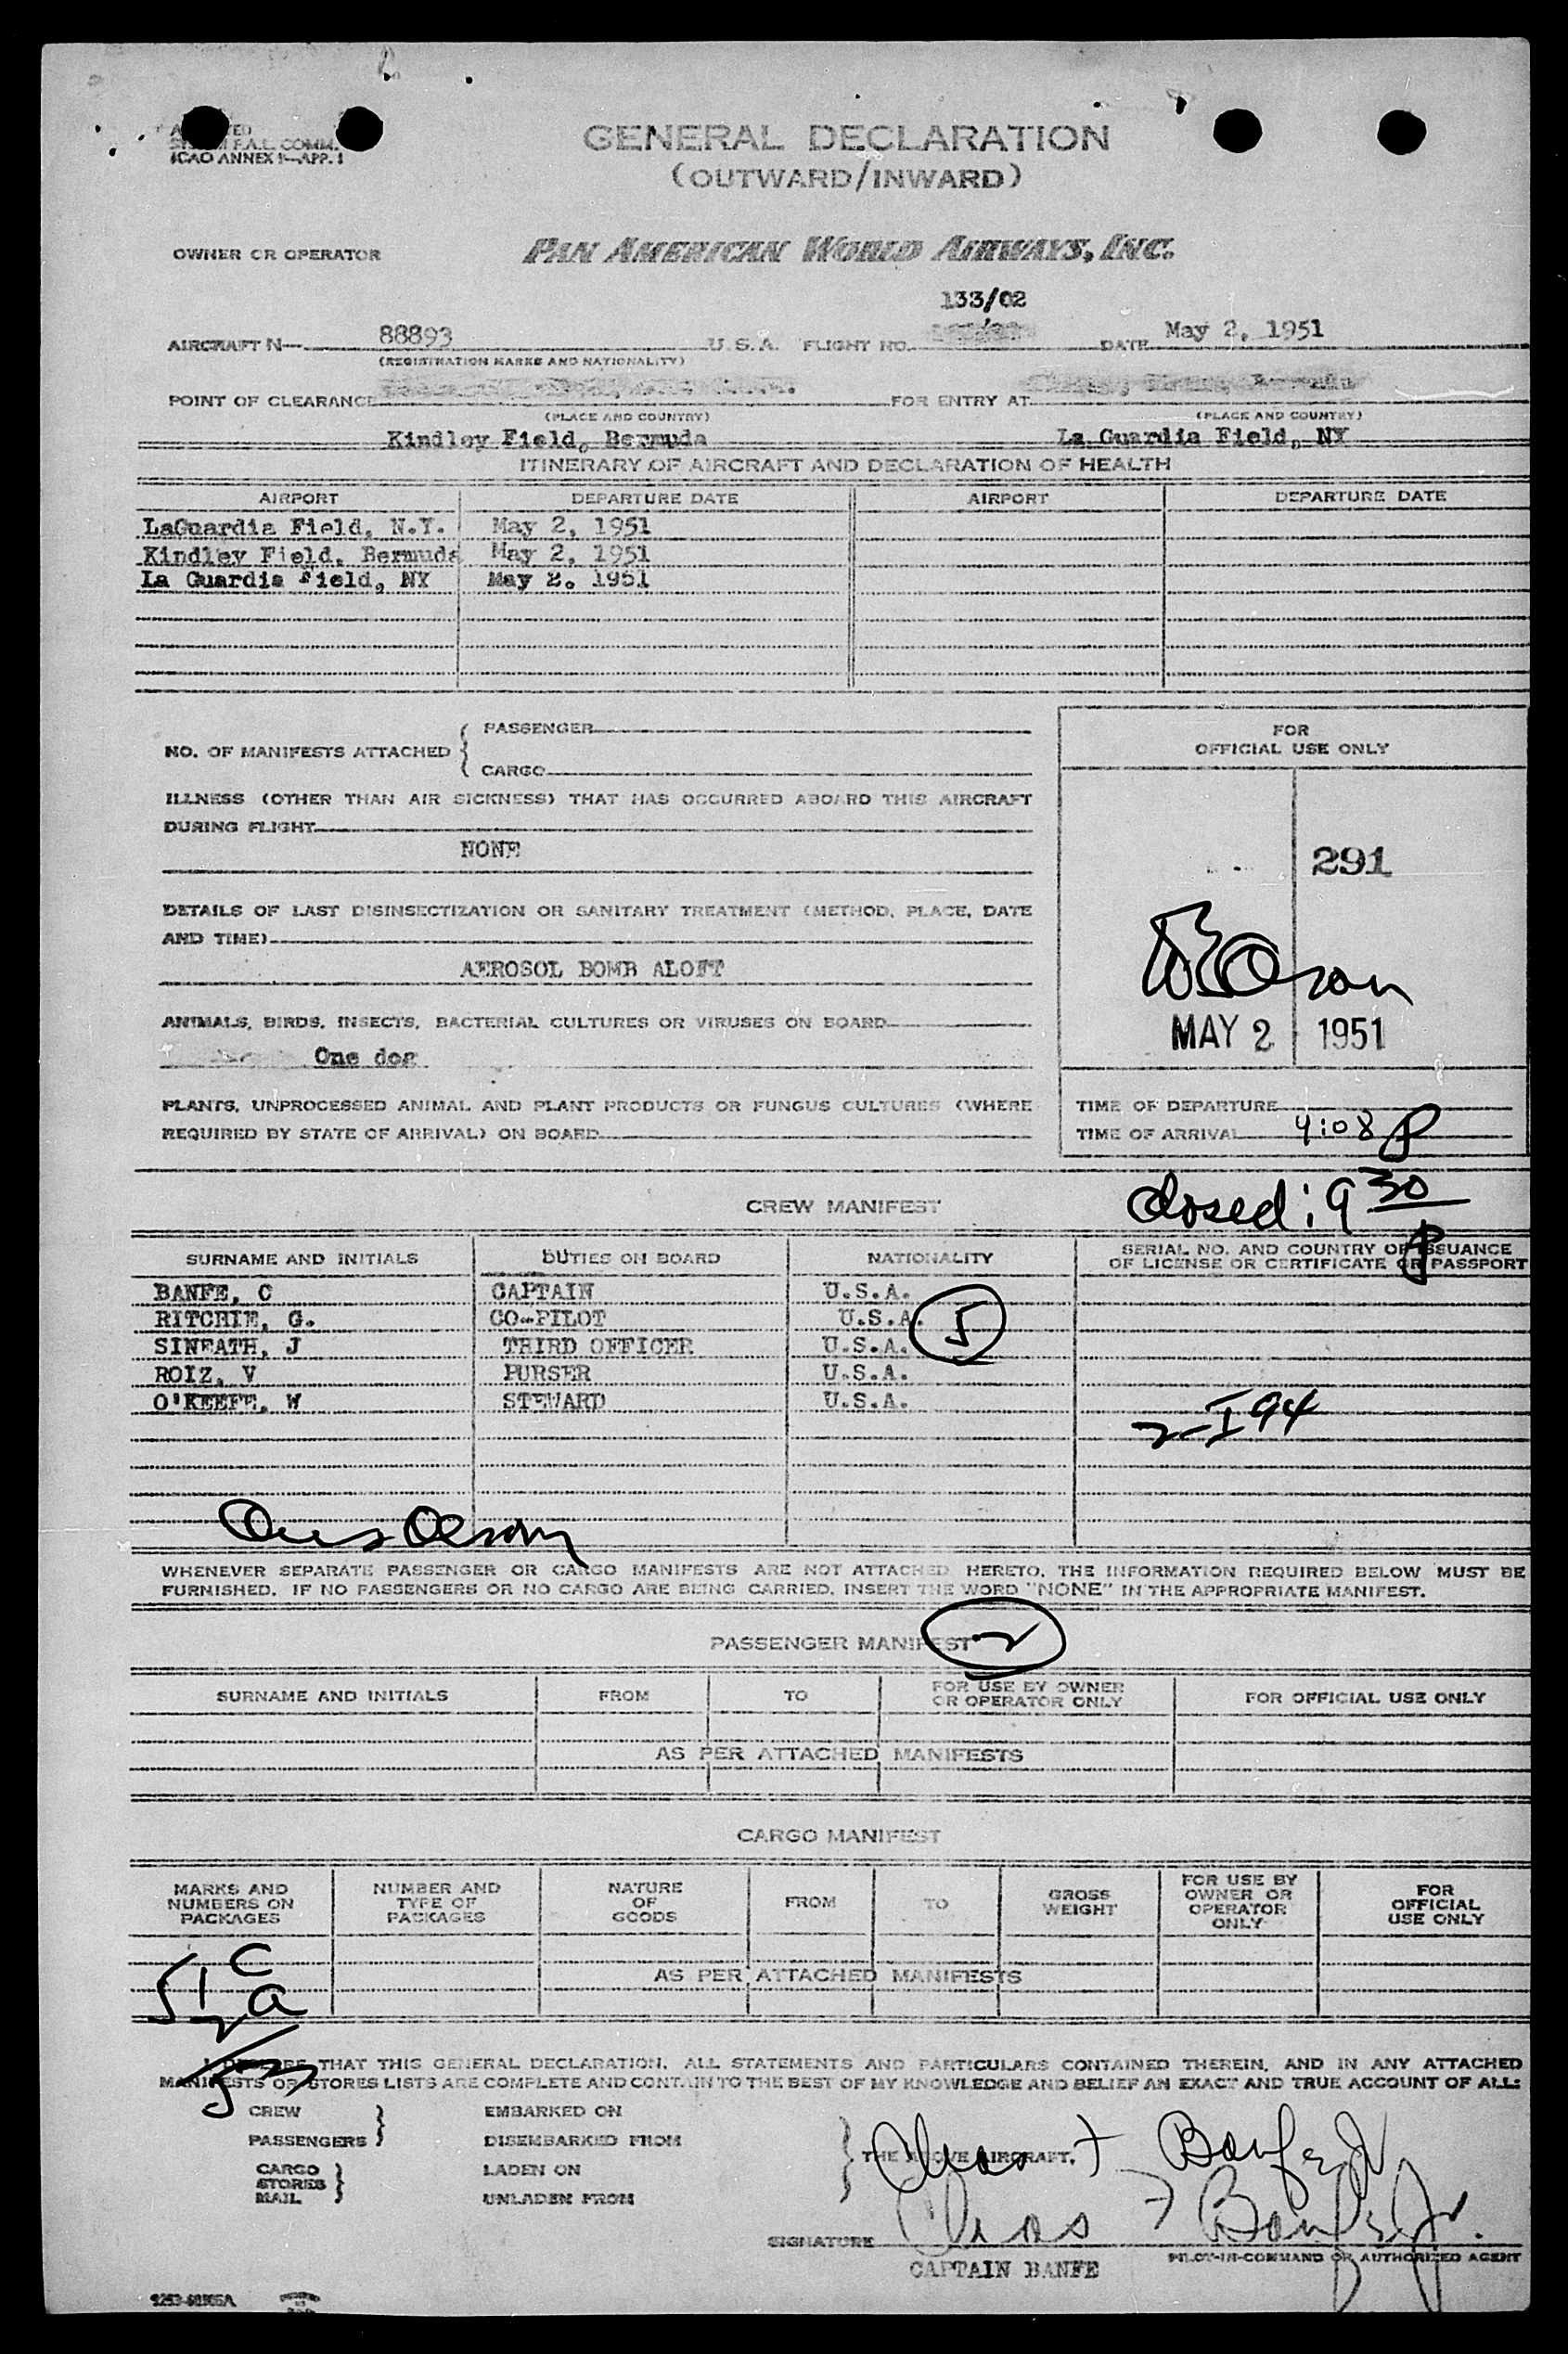 F.A.L. COMM.
ICAO ANNEX 1—APP. 1
GENERAL DECLARATION
(OUTWARD/INWARD)
OWNER OR OPERATOR PAN AMERICAN WORLD AIRWAYS, INC.
133/02
AIRCRAFT N— 88893 U.S.A. FLIGHT NO. DATE May 2, 1951
(REGISTRATION MARKS AND NATIONALITY)
POINT OF CLEARANCE FOR ENTRY AT
(PLACE AND COUNTRY) (PLACE AND COUNTRY)
Kindley Field, Bermuda La Guardia Field, NY
ITINERARY OF AIRCRAFT AND DECLARATION OF HEALTH
AIRPORT DEPARTURE DATE AIRPORT DEPARTURE DATE
LaGuardia Field, N.Y. May 2, 1951
Kindley Field, Bermuda May 2, 1951
La Guardia Field, NY May 2. 1951
NO. OF MANIFESTS ATTACHED { PASSENGER
CARGO
FOR
OFFICIAL USE ONLY
ILLNESS (OTHER THAN AIR SICKNESS) THAT HAS OCCURRED ABOARD THIS AIRCRAFT
DURING FLIGHT
NONE
291
DETAILS OF LAST DISINSECTIZATION OR SANITARY TREATMENT (METHOD, PLACE, DATE
AND TIME)
AEROSOL BOMB ALOFT
ANIMALS, BIRDS, INSECTS, BACTERIAL CULTURES OR VIRUSES ON BOARD
MAY 2 1951
One dog
PLANTS, UNPROCESSED ANIMAL AND PLANT PRODUCTS OR FUNGUS CULTURES (WHERE
REQUIRED BY STATE OF ARRIVAL) ON BOARD
TIME OF DEPARTURE
TIME OF ARRIVAL 9:08 P
closed: 9 30 P
CREW MANIFEST
SURNAME AND INITIALS DUTIES ON BOARD NATIONALITY SERIAL NO. AND COUNTRY OF ISSUANCE
OF LICENSE OR CERTIFICATE OR PASSPORT
BANFE, C CAPTAIN U.S.A.
RITCHIE, G. CO-PILOT U.S.A. 5
SINEATH, J THIRD OFFICER U.S.A.
ROIZ, V PURSER U.S.A.
O'KEEFE, W STEWARD U.S.A.
2-I94
WHENEVER SEPARATE PASSENGER OR CARGO MANIFESTS ARE NOT ATTACHED HERETO, THE INFORMATION REQUIRED BELOW MUST BE
FURNISHED. IF NO PASSENGERS OR NO CARGO ARE BEING CARRIED, INSERT THE WORD "NONE" IN THE APPROPRIATE MANIFEST.
PASSENGER MANIFEST 2
SURNAME AND INITIALS FROM TO FOR USE BY OWNER
OR OPERATOR ONLY FOR OFFICIAL USE ONLY
AS PER ATTACHED MANIFESTS
CARGO MANIFEST
MARKS AND
NUMBERS ON
PACKAGES NUMBER AND
TYPE OF
PACKAGES NATURE
OF
GOODS FROM TO GROSS
WEIGHT FOR USE BY
OWNER OR
OPERATOR
ONLY FOR
OFFICIAL
USE ONLY
AS PER ATTACHED MANIFESTS
I DECLARE THAT THIS GENERAL DECLARATION, ALL STATEMENTS AND PARTICULARS CONTAINED THEREIN, AND IN ANY ATTACHED
MANIFESTS OR STORES LISTS ARE COMPLETE AND CONTAIN TO THE BEST OF MY KNOWLEDGE AND BELIEF AN EXACT AND TRUE ACCOUNT OF ALL:
CREW EMBARKED ON
PASSENGERS DISEMBARKED FROM
THE ABOVE AIRCRAFT.
CARGO LADEN ON
STORES
MAIL UNLADEN FROM
Chas F Banfe Jr
Chas F Banfe Jr.
SIGNATURE
CAPTAIN BANFE PILOT-IN-COMMAND OR AUTHORIZED AGENT